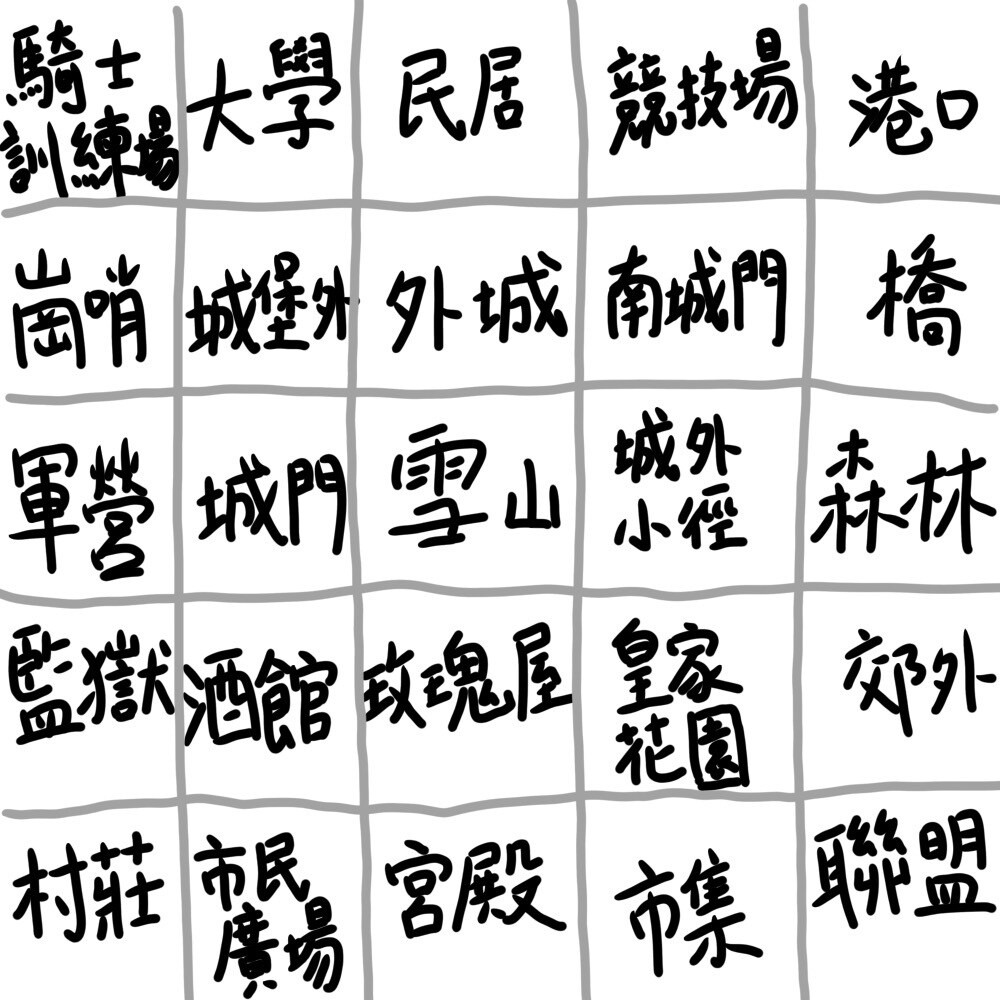 騎士
訓練場
大學
民居
競技場
港口
崗哨
城堡外
外城
南城門
橋
軍營
城門
雪山
城外
小徑
森林
監獄
酒館
玫瑰屋
皇家
花園
郊外
村莊
市民
廣場
宮殿
市集
聯盟